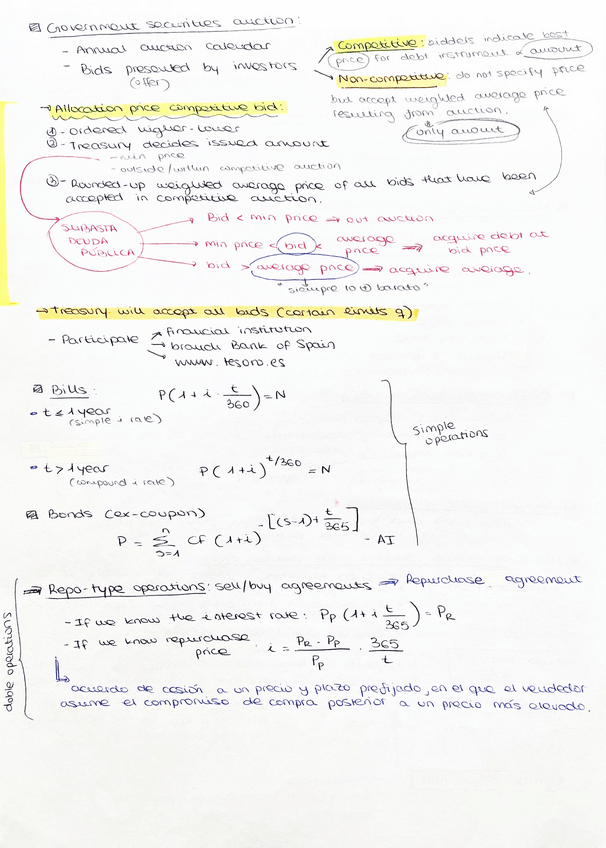 Government securities auction:
- Annual auction calendar
- Bids presented by investors
(offer)
Competitive: bidders indicate best
price for debt instrument & amount
Non-competitive: do not specify price
but accept weighted average price
resulting from auction.
only amount
→ Allocation price competitive bid:
① - Ordered higher-lower
② - Treasury decides issued amount
- min price
- outside/within competitive auction
③ - Rounded-up weighted average price of all bids that have been
accepted in competitive auction.
SUBASTA
DEUDA
PÚBLICA
Bid < min price → out auction
min price < bid < average price ⇒ acquire debt at bid price
bid > average price → acquire average.
"siempre lo + barato"
→ Treasury will accept all bids (certain limits q)
- Participate
financial institution
branch Bank of Spain
www.tesoro.es
Bills:
P(1+i · t/360) = N
• t ≤ 1 year
(simple i rate)
simple
operations
• t > 1 year
P(1+i)^t/360 = N
(compound i rate)
Bonds (ex-coupon)
P = Σ CF (1+i)^-[(s-1)+t/365] - AI
⇒ Repo-type operations: sell/buy agreements ⇒ Repurchase agreement
- If we know the interest rate: Pp (1+i t/365) = PR
- If we know repurchase
price
i = PR - Pp / Pp · 365 / t
acuerdo de cesión a un precio y plazo prefijado, en el que el vendedor
asume el compromiso de compra posterior a un precio más elevado.
doble operations